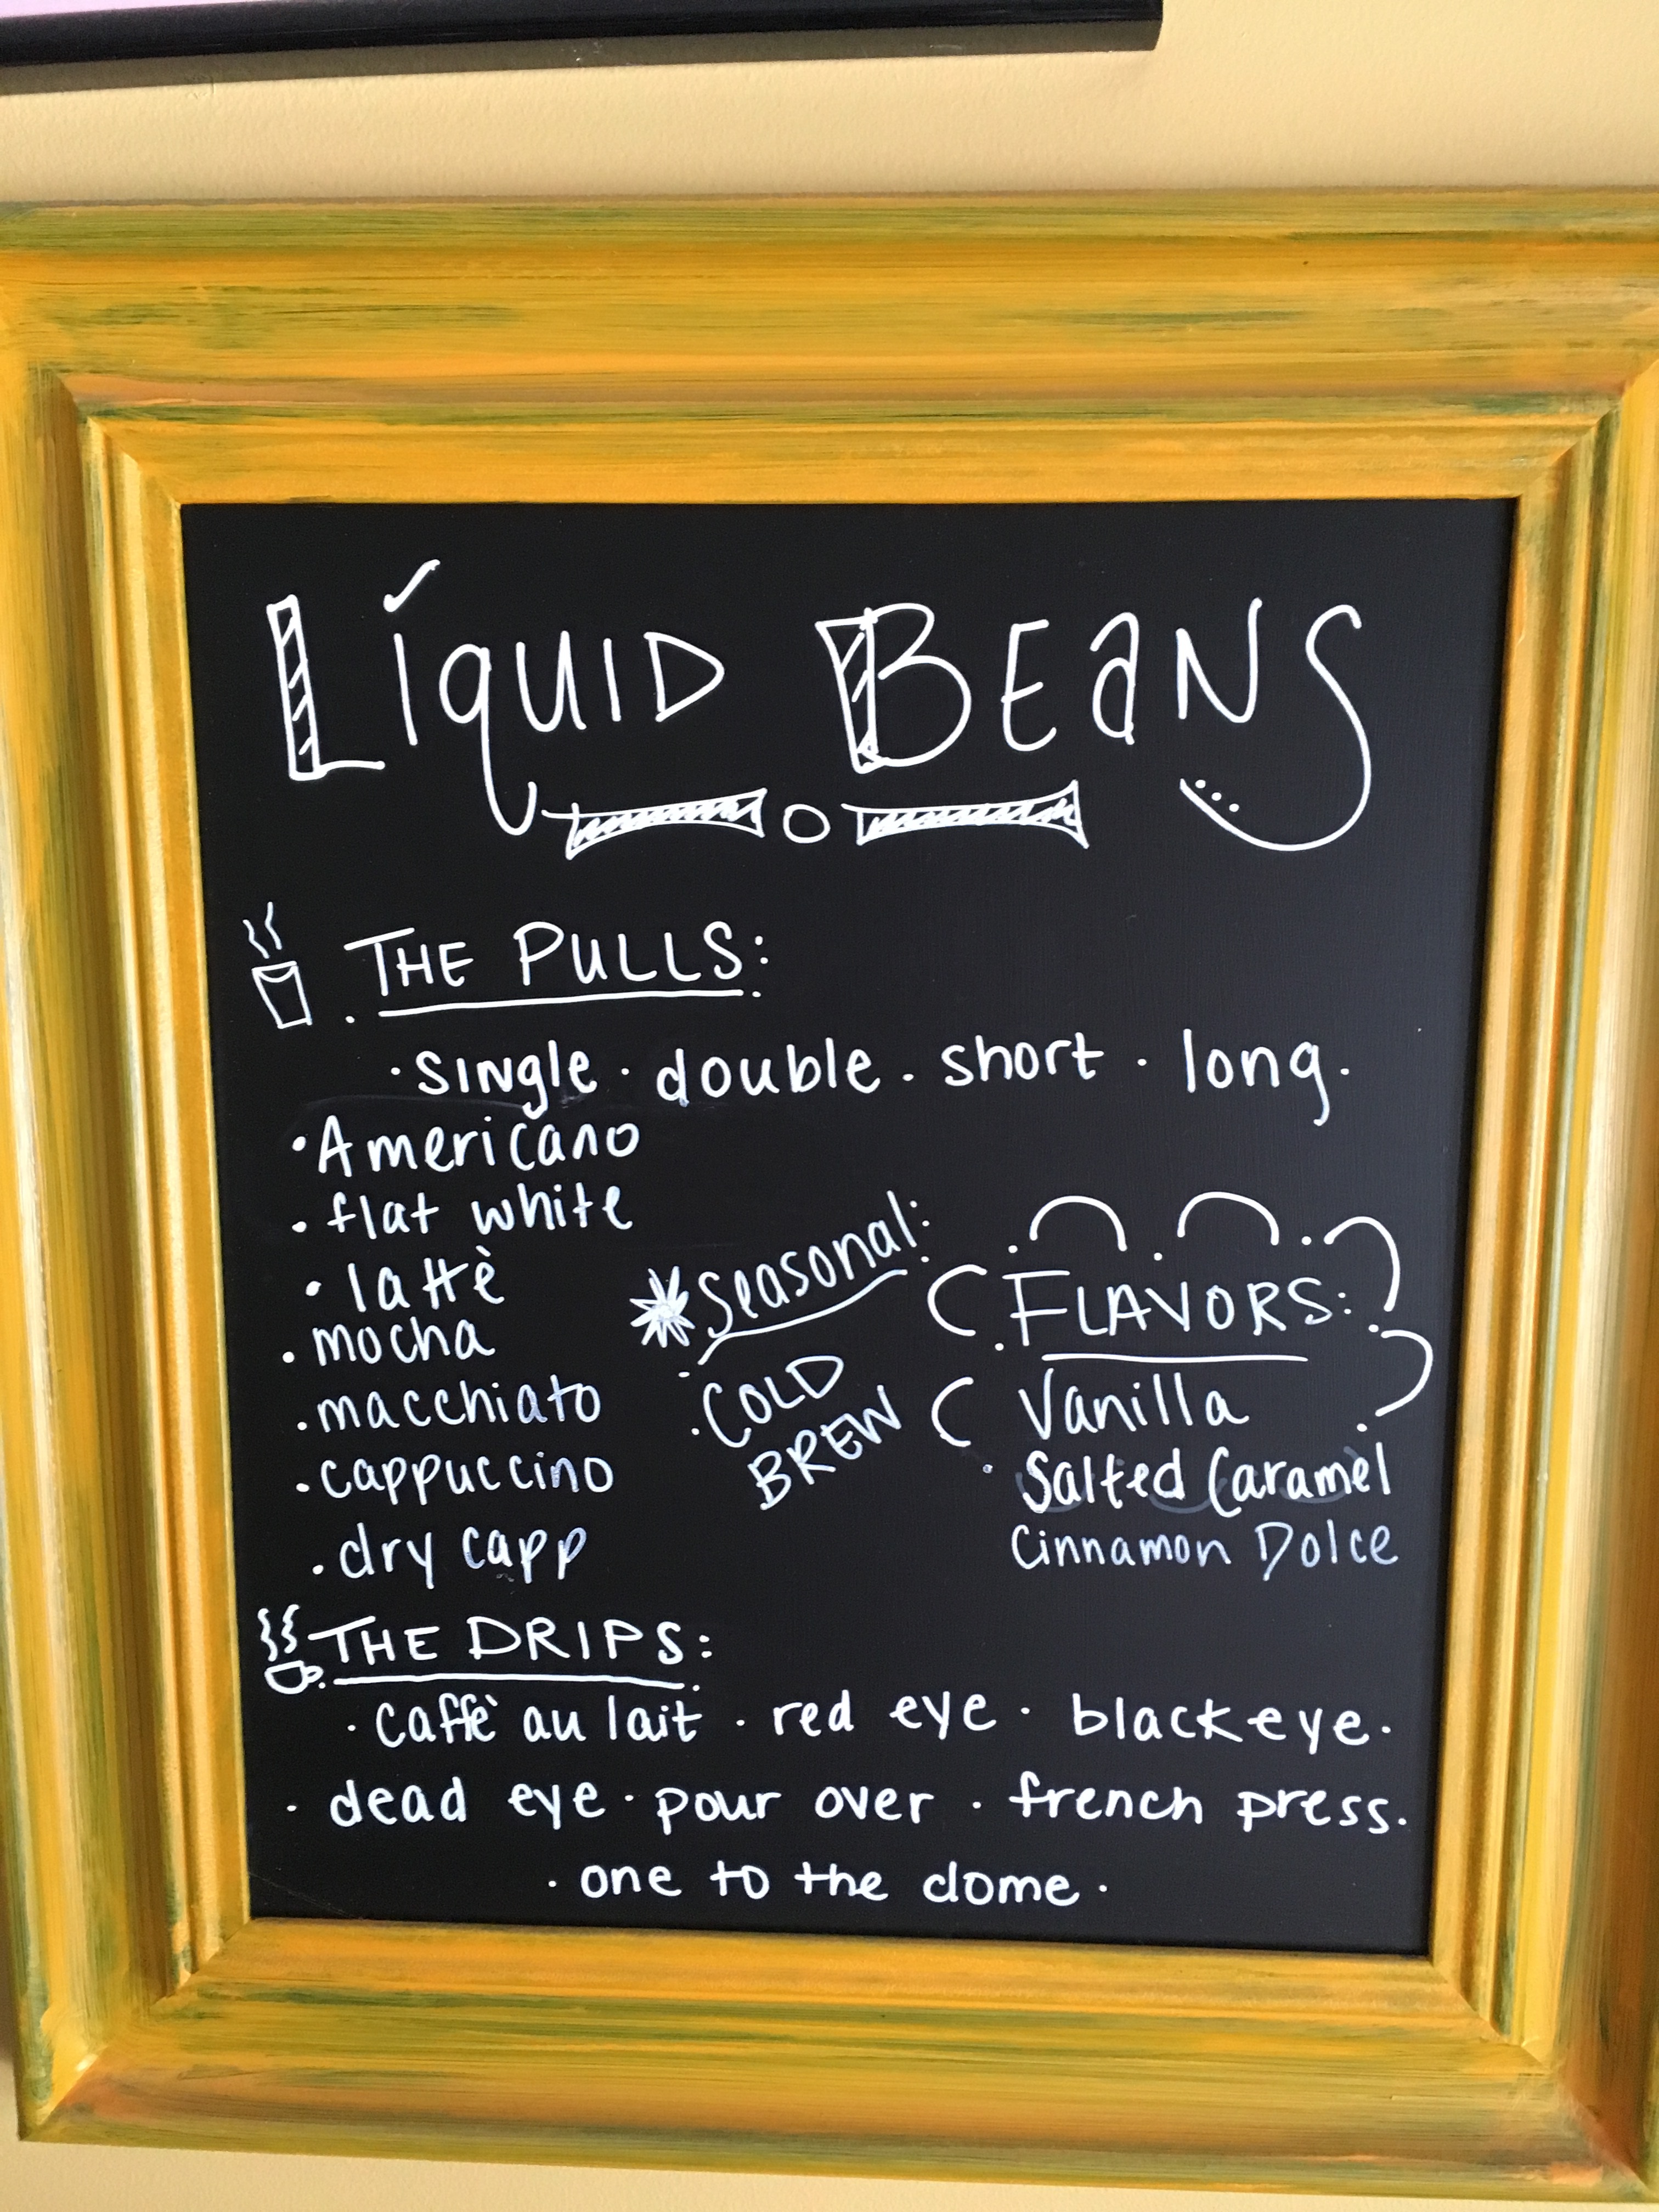 LíQUID BEaNS
THE PULLS:
· Single · double · short · long.
· Americano
· flat white
· lattè
· mocha
· macchiato
· cappuccino
· dry capp
Seasonal:
· COLD
BREW
FLAVORS:
Vanilla
· Salted Caramel
Cinnamon Dolce
THE DRIPS:
· caffè au lait · red eye · black eye.
· dead eye · pour over · french press.
· one to the dome.